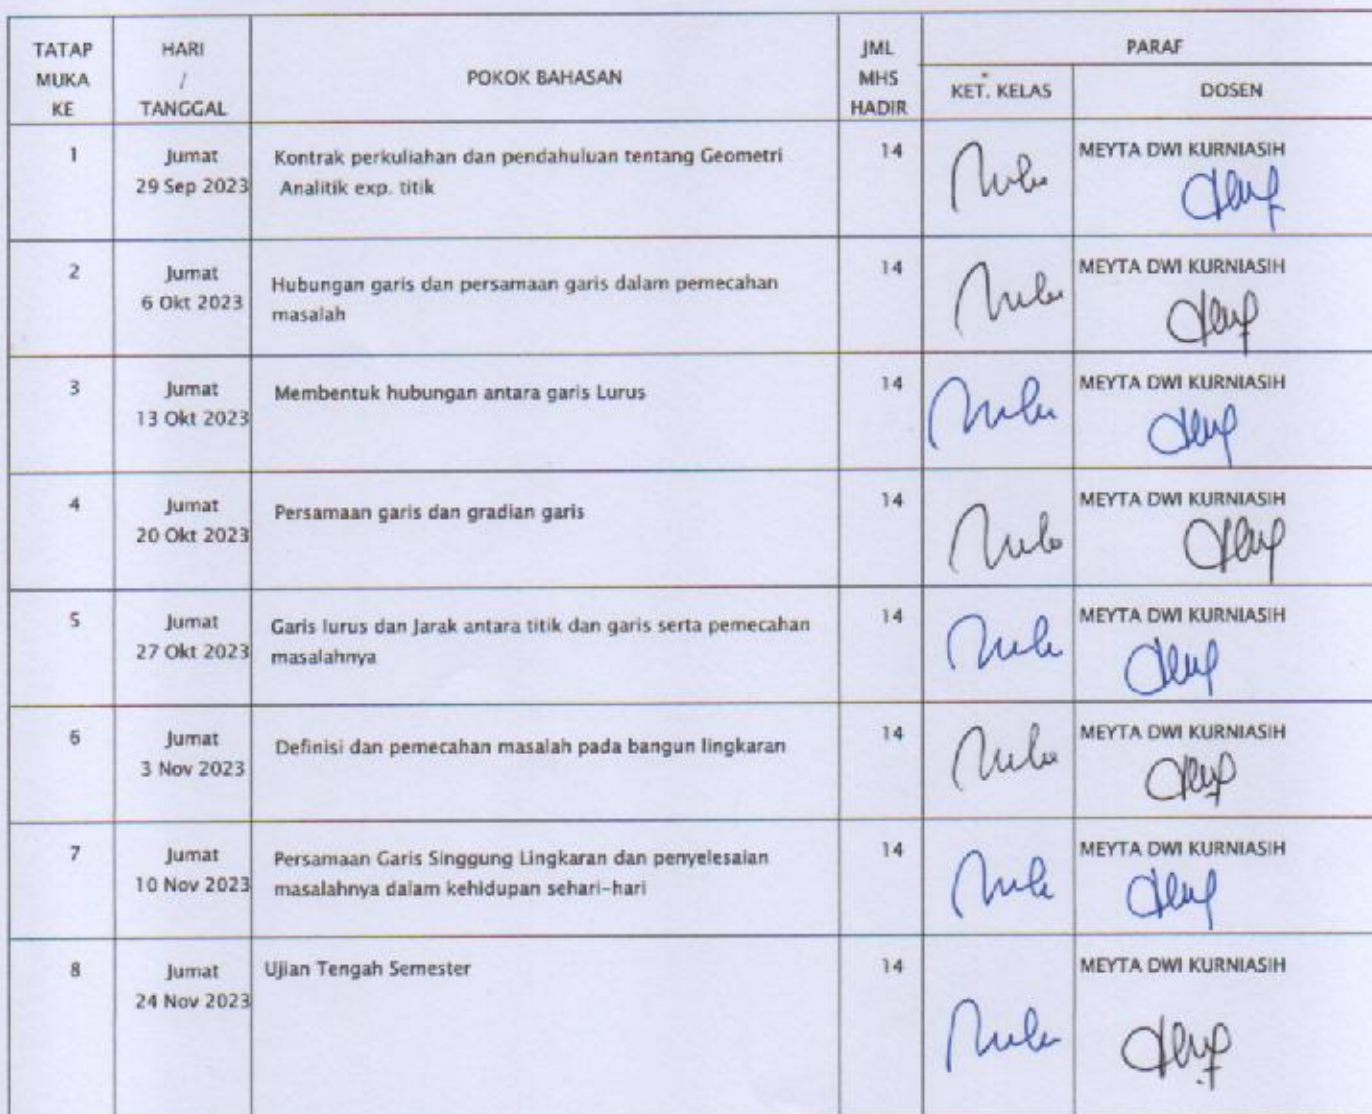 TATAP MUKA KE
HARI / TANGGAL
POKOK BAHASAN
JML MHS HADIR
PARAF
KET. KELAS
DOSEN
1
Jumat
29 Sep 2023
Kontrak perkuliahan dan pendahuluan tentang Geometri
Analitik exp. titik
14
MEYTA DWI KURNIASIH
2
Jumat
6 Okt 2023
Hubungan garis dan persamaan garis dalam pemecahan
masalah
14
MEYTA DWI KURNIASIH
3
Jumat
13 Okt 2023
Membentuk hubungan antara garis Lurus
14
MEYTA DWI KURNIASIH
4
Jumat
20 Okt 2023
Persamaan garis dan gradian garis
14
MEYTA DWI KURNIASIH
5
Jumat
27 Okt 2023
Garis lurus dan Jarak antara titik dan garis serta pemecahan
masalahnya
14
MEYTA DWI KURNIASIH
6
Jumat
3 Nov 2023
Definisi dan pemecahan masalah pada bangun lingkaran
14
MEYTA DWI KURNIASIH
7
Jumat
10 Nov 2023
Persamaan Garis Singgung Lingkaran dan penyelesaian
masalahnya dalam kehidupan sehari-hari
14
MEYTA DWI KURNIASIH
8
Jumat
24 Nov 2023
Ujian Tengah Semester
14
MEYTA DWI KURNIASIH